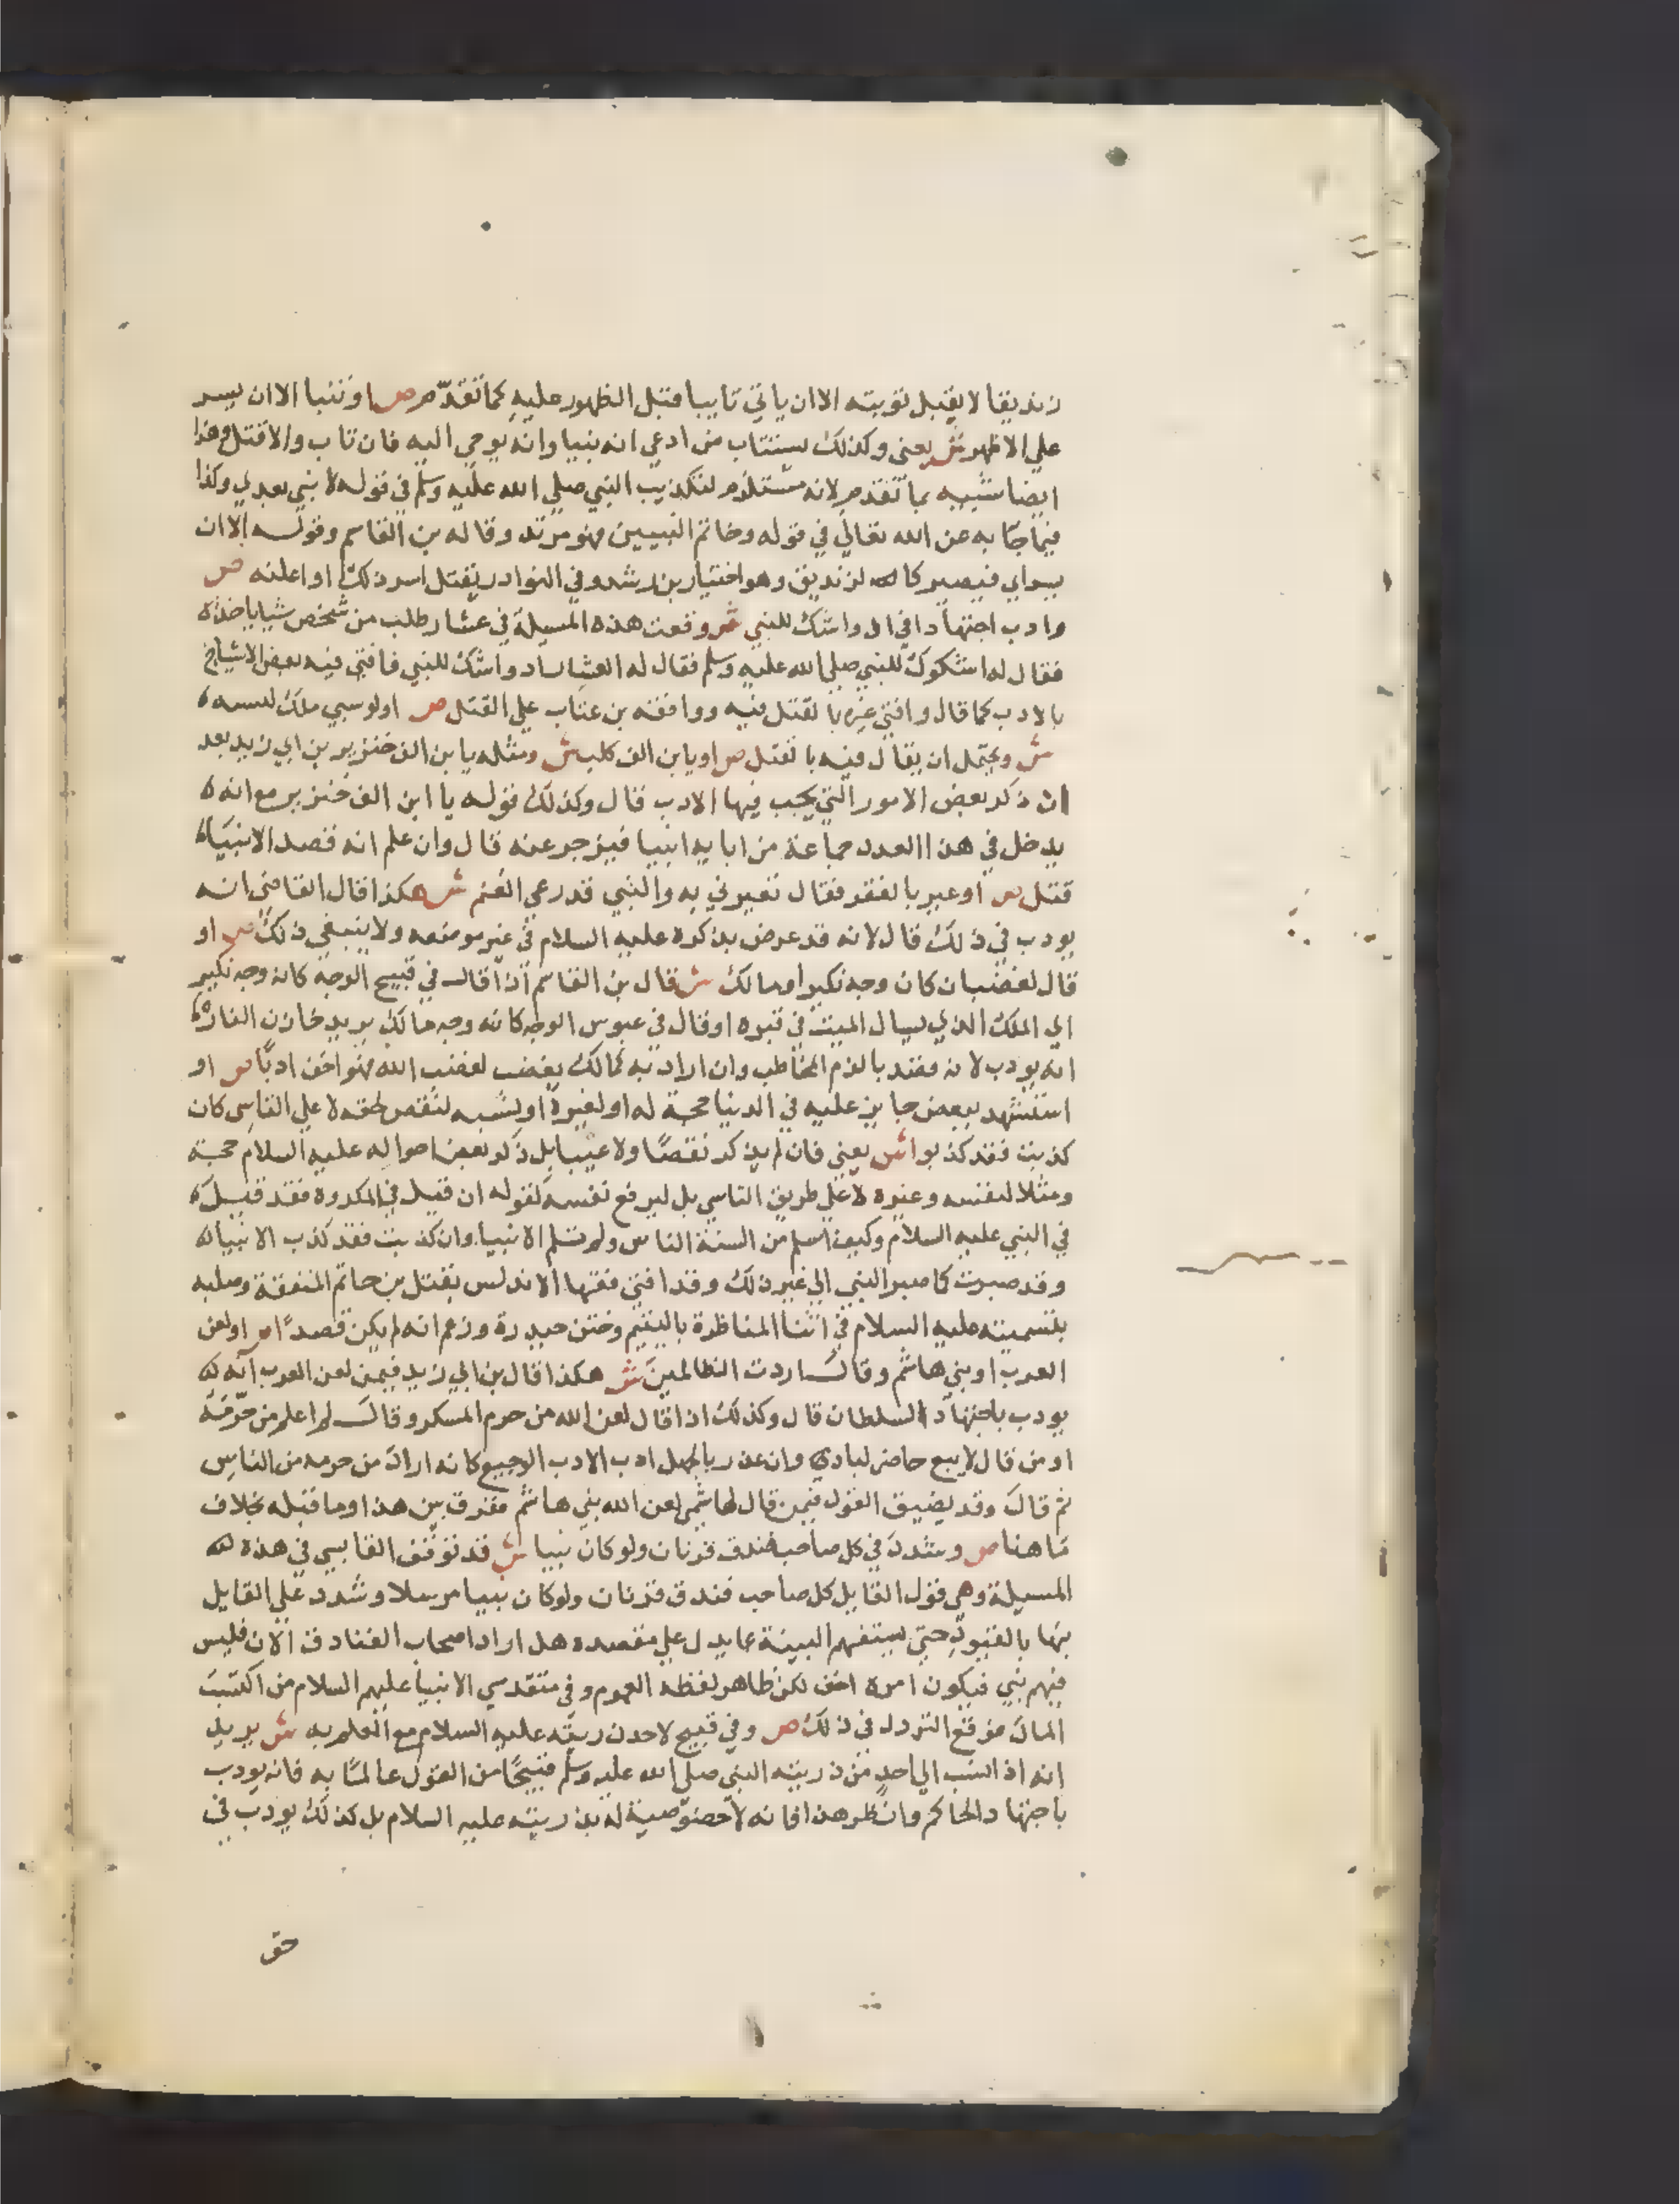 زنديقا لا يقبل توبته الا ان ياتي تايبا قبل الظهور عليه كما تقدم ص او تنبا الا ان يسر
علي الاظهر ش يعني وكذلك يستتاب من ادعي انه نبيا وانه يوحي اليه فان تاب والا قتل وهذا
ايضا شبيه بما تقدم لانه مستلزم لتكذيب النبي صلي الله عليه وسلم في قوله لا نبي بعدي وكذا
فيما جا به عن الله تعالي في قوله وخاتم النبيين فهو مرتد وقاله بن القاسم وقوله الا ان
يسراي فيصير كالزنديق وهو اختيار بن رشد وفي النوادر يقتل اسر ذلك او اعلنه ص
وادب اجتهادا في اد واشك للنبي ش وقعت هذه المسيلة في عشار طلب من شخص شيا ياخذه
فقال له اشكوك للنبي صلي الله عليه وسلم فقال له العشار اد واشك للنبي فافتي فيه بعض الاشياخ
بالادب كما قال وافتي غيره بالقتل فيه ووافقه بن عتاب علي القتل ص او لو سبي ملك لسببته
ش ويحتمل ان يقال فيه بالقتل ص او يا ابن الف كلب ش ومثله يا بن الف خنزير بن ابي زيد بعد
ان ذكر بعض الامور التي يجب فيها الادب قال وكذلك قوله يا ابن الف خنزير مع انه
يدخل في هذا العدد جماعة من ابايه انبيا فيزجر عنه قال وان علم انه قصد الانبياء
قتل ص او عير بالفقر فقال تعيرني به والنبي قد رعي الغنم ش هكذا قال القاضي انه
يودب في ذلك قال لانه قد عرض بذكره عليه السلام في غير موضعه ولا ينبغي ذلك ص او
قال لغضبان كان وجه نكير او مالك ش قال بن القاسم اذا قال في قبيح الوجه كانه وجه نكير
اي الملك الذي يسال الميت في قبره او قال في عبوس الوجه كانه وجه مالك يريد خازن النار
انه يودب لانه قصد بالذم المخاطب وان اراد به كمالك يغضب لغضب الله فهو اخف ادبا ص او
استشهد ببعض جايز عليه في الدنيا حجة له او لغيره او لشبه لنقص لحقه لا علي التاسي كان
كذبت فقد كذبوا ش يعني فان لم يذكر نقصا ولا عيبا بل ذكر بعض احواله عليه السلام حجة
ومثلا لنفسه وغيره لا علي طريق التاسي بل ليرفع نفسه كقوله ان قيل في المكروه فقد قيل
في النبي عليه السلام وكيف اسلم من السنة الناس ولم تسلم الانبيا وان كذبت فقد كذب الانبيا
وقد صبرت كما صبر النبي الي غير ذلك وقد افتي فقها الاندلس بقتل بن حاتم المتفقه وصلبه
بتسميته عليه السلام في اثنا المناظرة باليتيم وختن حيدرة وزعم انه لم يكن قصدا ص او لعن
العرب او بني هاشم وقال اردت الظالمين ش هكذا قال بن ابي زيد فيمن لعن العرب انه
يودب باجتهاد السلطان قال وكذلك اذا قال لعن الله من حرم المسكر وقال لم اعلم من حرمه
او من قال لا يبع حاضر لبادي وان عذر بالجهل ادب الادب الوجيع كانه اراد من حرمه من الناس
ثم قال وقد يضيق القول فيمن قال لهاشمي لعن الله بني هاشم ففرق بين هذا وما قبله بخلاف
ما هنا ص وشدد في كل صاحب فندق قرنان ولو كان نبيا ش قد توقف القابسي في هذه
المسيلة وهي قول القايل كل صاحب فندق قرنان ولو كان نبيا مرسلا وشدد علي القايل
بها بالقيود حتي يستفهم البينة عما يدل علي مقصده هل اراد اصحاب الفنادق الان فليس
فيهم نبي فيكون امره اخف لكن ظاهر لفظه العموم وفي متقدمي الانبيا عليهم السلام من اكتسب
المال فوقع التردد في ذلك ص وفي قبيح لاحد ذريته عليه السلام مع العلم به ش يريد
انه اذا نسب الي احد من ذريته النبي صلي الله عليه وسلم قبيحا من القول عالما به فانه يودب
باجتهاد الحاكم وانظر هذا فانه لا خصوصية له بذريته عليه السلام بل كذلك يودب في
حق